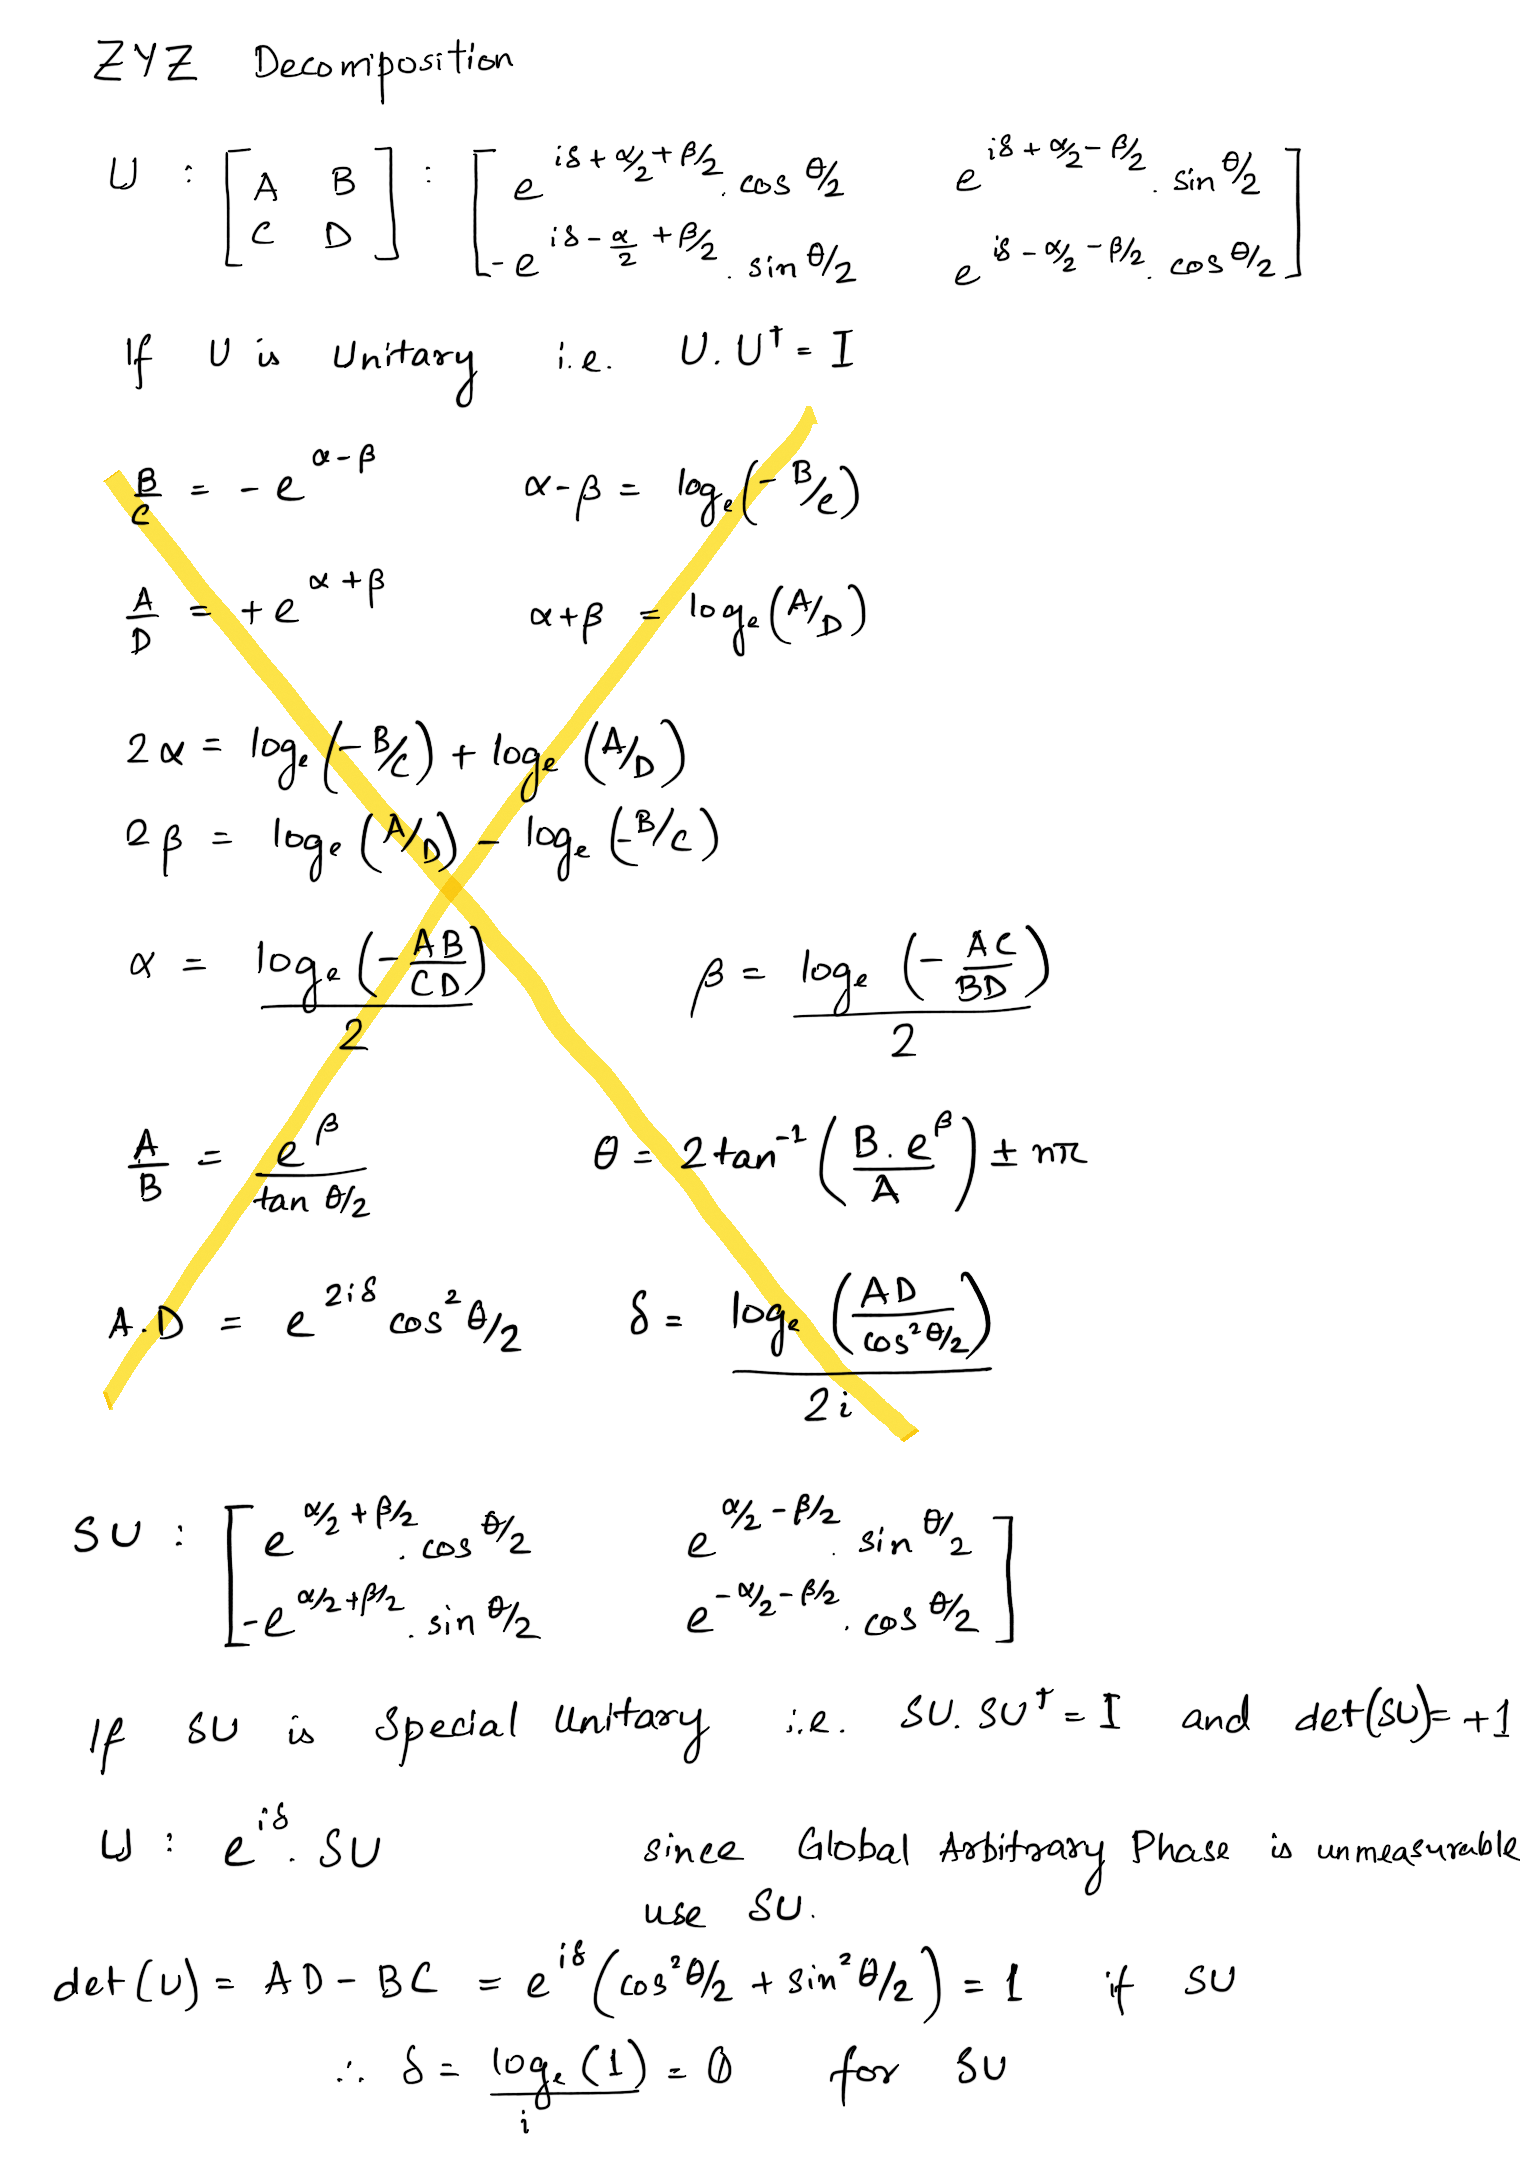 ZYZ Decomposition
U : [A B; C D] : [e^{iδ + α/2 + β/2} . cos θ/2   e^{iδ + α/2 - β/2} . sin θ/2; -e^{iδ - α/2 + β/2} . sin θ/2   e^{iδ - α/2 - β/2} . cos θ/2]
If U is Unitary i.e. U.U† = I
B/C = -e^{α-β}   α-β = log_e(-B/C)
A/D = +e^{α+β}   α+β = log_e(A/D)
2α = log_e(-B/C) + log_e(A/D)
2β = log_e(A/D) - log_e(-B/C)
α = log_e(-AB/CD)/2   β = log_e(-AC/BD)/2
A/B = e^β/tan θ/2   θ = 2 tan^{-1}(B.e^β/A) ± nπ
A.D = e^{2iδ} cos² θ/2   δ = log_e(AD/cos² θ/2)/2i
SU : [e^{α/2 + β/2} . cos θ/2   e^{α/2 - β/2} . sin θ/2; -e^{α/2 + β/2} . sin θ/2   e^{-α/2 - β/2} . cos θ/2]
If SU is Special Unitary i.e. SU.SU† = I and det(SU) = +1
U : e^{iδ} . SU   since Global Arbitrary Phase is unmeasurable
use SU.
det(U) = AD - BC = e^{iδ}(cos² θ/2 + sin² θ/2) = 1 if SU
∴ δ = log_e(1)/i = 0 for SU